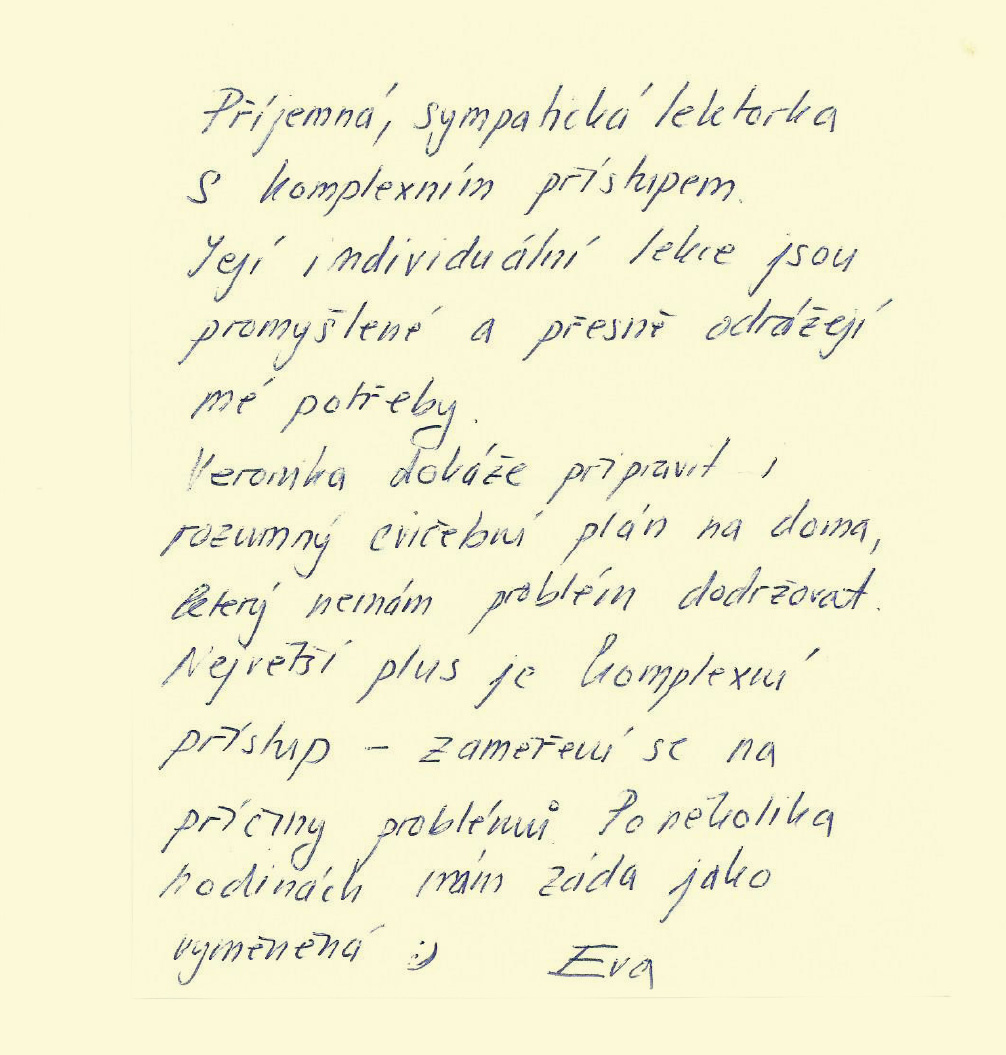 Příjemná, sympatická lektorka
s komplexním přístupem.
Její individuální lekce jsou
promyšlené a přesně odrážejí
mé potřeby.
Veronika dokáže připravit i
rozumný cvičební plán na doma,
který nemám problém dodržovat.
Největší plus je komplexní
přístup – zaměření se na
příčiny problémů. Po několika
hodinách mám záda jako
vyměněná :) Eva